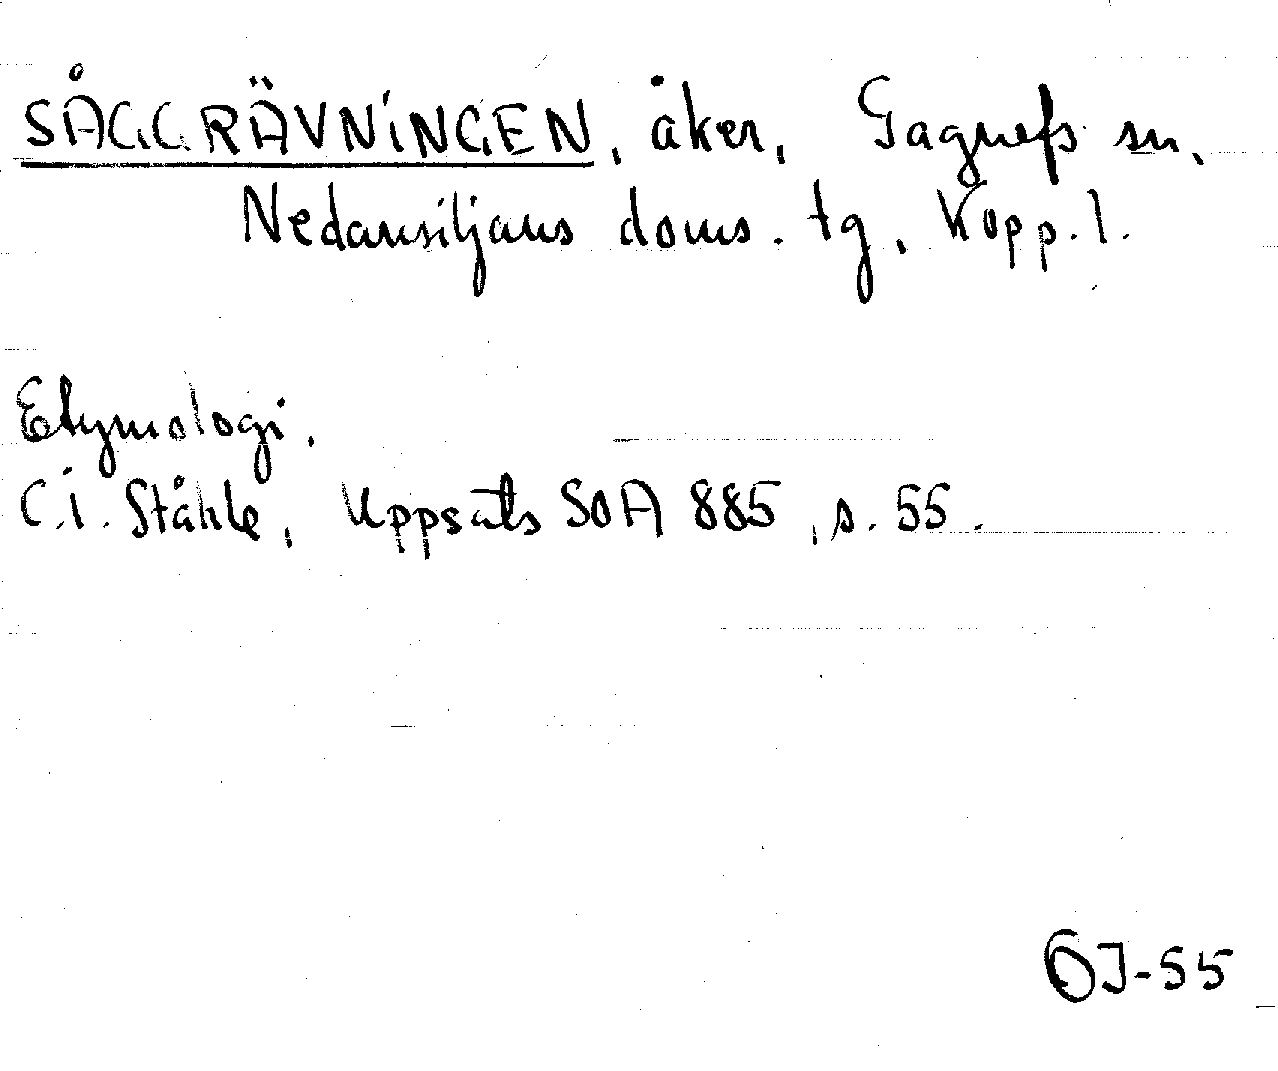 SÅGGRÄVNINGEN, åker, Gagnefs sn,
Nedansiljans doms. tg, Kopp. l.
Etymologi.
C.I. Ståhle, Uppsats SOA 885, s. 55.
OJ-55